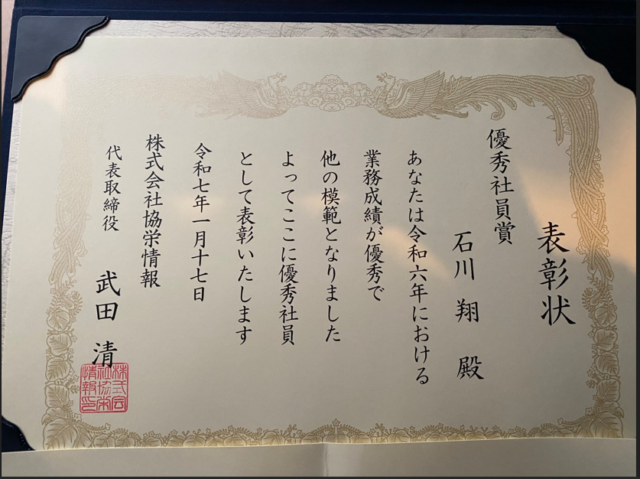 表彰状
優秀社員賞
石川 翔 殿
あなたは令和六年における
業務成績が優秀で
他の模範となりました
よってここに優秀社員
として表彰いたします
令和七年一月十七日
株式会社協栄情報
代表取締役 武田 清
株式会
社協栄
情報印